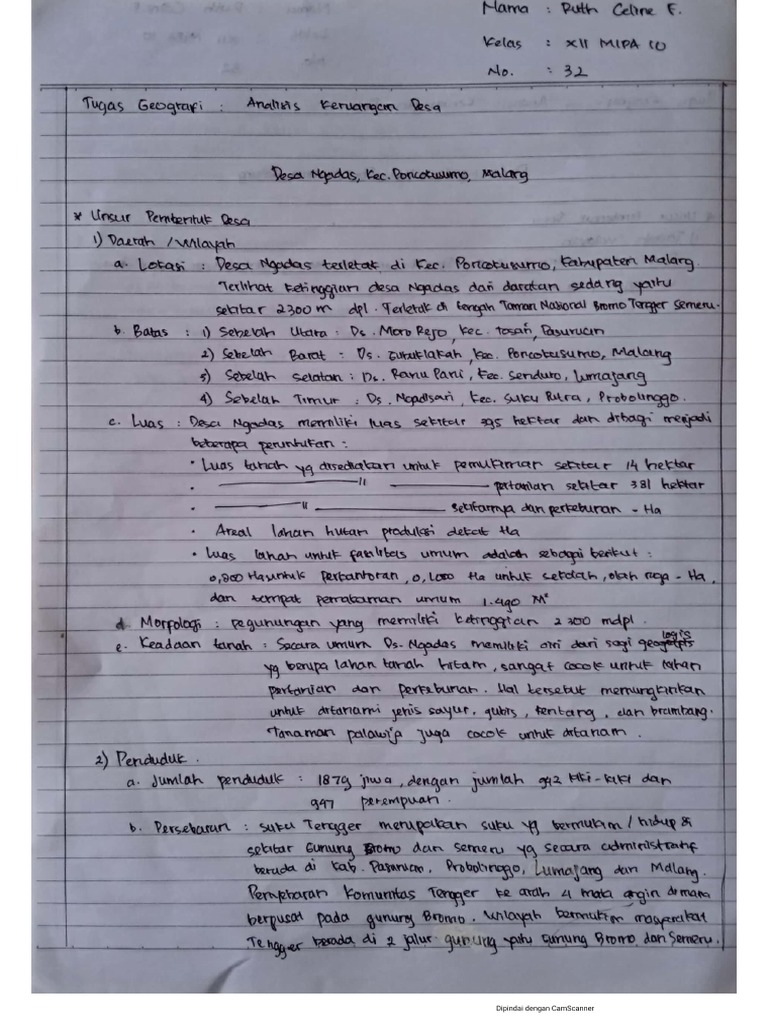 Nama : Ruth Celine F.
Kelas : XII MIPA 10
No. : 32
Tugas Geografi : Analisis Keruangan Desa
Desa Ngadas, Kec. Poncokusumo, Malang
* Unsur Pembentuk Desa
1) Daerah / Wilayah
a. Lokasi : Desa Ngadas terletak di Kec. Poncokusumo, Kabupaten Malang.
Terlihat ketinggian desa Ngadas dari daratan sedang yaitu
sekitar 2300 m dpl. Terletak di tengah Taman Nasional Bromo Tengger Semeru.
b. Batas : 1) Sebelah Utara : Ds. Moro Rejo, Kec. Tosari, Pasuruan
2) Sebelah Barat : Ds. Gubuklakah, Kec. Poncokusumo, Malang
3) Sebelah Selatan : Ds. Ranu Pani, Kec. Senduro, Lumajang
4) Sebelah Timur : Ds. Ngadisari, Kec. Suku Pura, Probolinggo.
c. Luas : Desa Ngadas memiliki luas sekitar 395 hektar dan dibagi menjadi
beberapa peruntukan :
• Luas tanah yg disediakan untuk pemukiman sekitar 14 hektar
• —— " —— pertanian sekitar 381 hektar
• —— " —— dan perkebunan - Ha
• Areal lahan hutan produksi dekat Ha
• Luas lahan untuk fasilitas umum adalah sebagai berikut :
0,800 Ha untuk perkantoran, 0,1000 Ha untuk sekolah, olah raga - Ha,
dan tempat pemakaman umum 1.490 M²
d. Morfologi : Pegunungan yang memiliki ketinggian 2300 mdpl.
e. Keadaan tanah : Secara umum Ds. Ngadas memiliki ciri dari segi geologis
yg berupa lahan tanah hitam, sangat cocok untuk lahan
pertanian dan perkebunan. Hal tersebut memungkinkan
untuk ditanami jenis sayur, gubis, kentang, dan brambang.
Tanaman palawija juga cocok untuk ditanam.
2) Penduduk.
a. Jumlah penduduk : 1879 jiwa, dengan jumlah 942 laki-laki dan
947 perempuan.
b. Persebaran : suku Tengger merupakan suku yg bermukim / hidup di
sekitar Gunung Bromo dan Semeru yg secara administratif
berada di Kab. Pasuruan, Probolinggo, Lumajang dan Malang.
Penyebaran Komunitas Tengger ke arah 4 mata angin dimana
berpusat pada gunung Bromo. Wilayah bermukim masyarakat
Tengger berada di 2 jalur gunung yaitu Gunung Bromo dan Semeru.
Dipindai dengan CamScanner